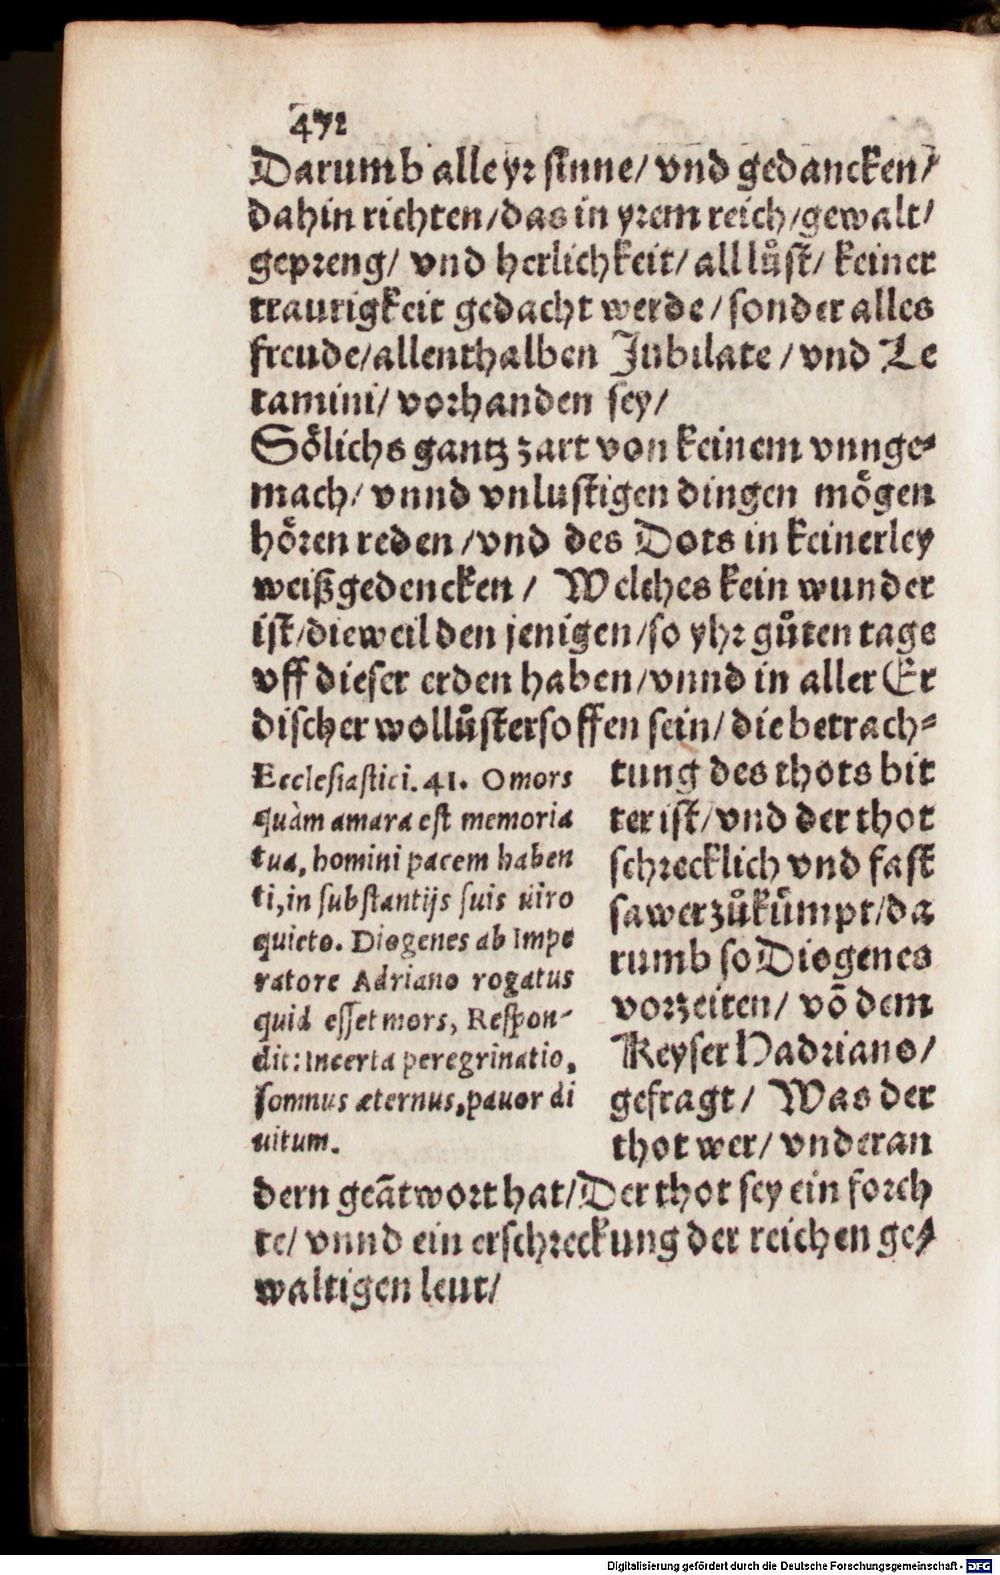 472
Darumb alle yr sinne/ vnd gedancken/
dahin richten/das in yrem reich/gewalt/
gepreng/ vnd herlichkeit/ all lůst/ keiner
traurigkeit gedacht werde/sonder alles
freude/allenthalben Jubilate/vnd Le
tamini/ vorhanden sey/
Sölichs gantz zart von keinem vnnge⸗
mach/ vnnd vnlustigen dingen mögen
hören reden/vnd des Dots in keinerley
weiß gedencken/ Welches kein wunder
ist/dieweil den jenigen/so yhr gůten tage
vff dieser erden haben/vnnd in aller Er
discher wollůst ersoffen sein/ die betrach⸗
tung des thots bit
ter ist/vnd der thot
schrecklich vnd fast
sawer zůkümpt/da
rumb so Diogenes
vorzeiten/ võ dem
Keyser Hadriano/
gefragt/ Was der
thot wer/ vnder an
dern geãtwort hat/Der thot sey ein forch
te/ vnnd ein erschreckung der reichen ge⸗
waltigen leut/
Ecclesiastici. 41. O mors
quàm amara est memoria
tua, homini pacem haben
ti, in substantijs suis uiro
quieto. Diogenes ab Impe
ratore Adriano rogatus
quid esset mors, Respon-
dit: Incerta peregrinatio,
somnus æternus, pauor di
uitum.
Digitalisierung gefördert durch die Deutsche Forschungsgemeinschaft - DFG